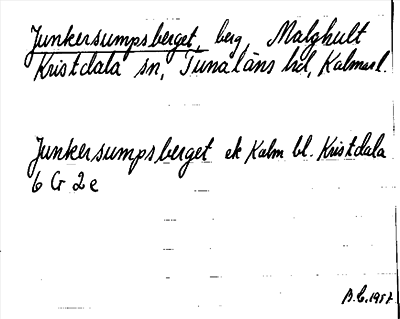 Junkersumpsberget, berg, Målghult
Kristdala sn, Tunaläns hd, Kalmar l.
Junkersumpsberget ek Kalm bl. Kristdala
6 G 2 e